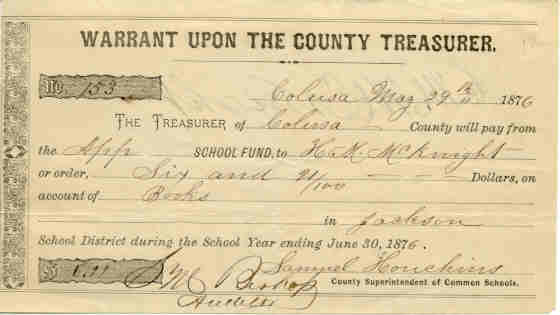 WARRANT UPON THE COUNTY TREASURER.
No 153 Colusa May 29th 1876
THE TREASURER of Colusa County will pay from
the App SCHOOL FUND, to H. K. McKnight
or order, Six and 91/100 Dollars, on
account of Books
in Jackson
School District during the School Year ending June 30, 1876.
$ 6.91 Bishop Samuel Houchins
County Superintendent of Common Schools.